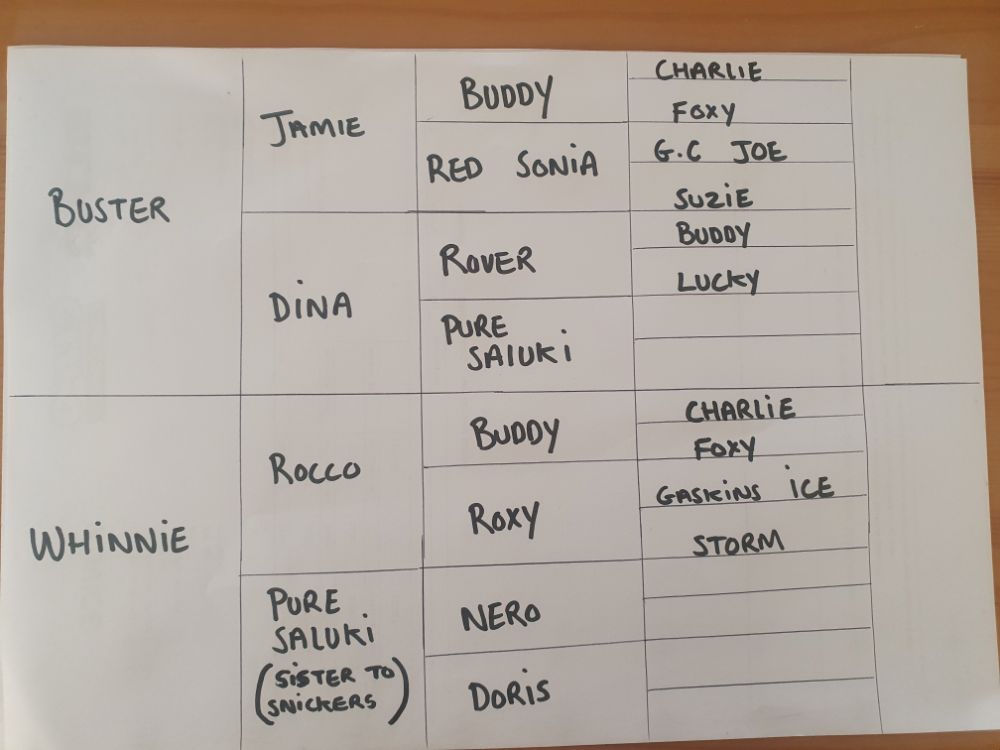 BUSTER
JAMIE
BUDDY
CHARLIE
FOXY
RED SONiA
G.C JOE
SUZiE
DiNA
ROVER
BUDDY
LUCKY
PURE
SALUKi
WHiNNiE
ROCCO
BUDDY
CHARLiE
FOXY
ROXY
GASKiNS iCE
STORM
PURE
SALUKi
(SiSTER TO
SNiCKERS)
NERO
DORiS